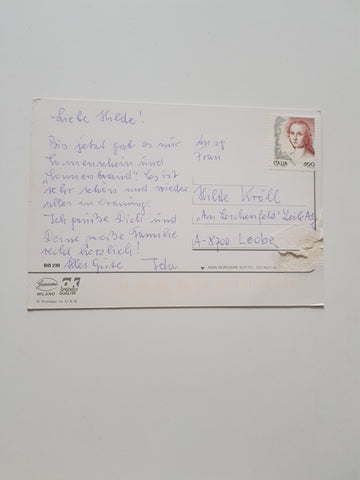 Liebe Hilde!
Bis jetzt gab es nur
Sonnenschein und
"Sonnenbrand". Es ist
sehr schön und wieder
alles in Ordnung.
Ich grüße Dich und
Deine große Familie
recht herzlich!
Alles Gute
An
Frau
Hilde Kröll
"Am Lerchenfeld"
A-8700 Leobe
ITALIA 800
BIS 238
NON SCRIVERE SOTTO
MILANO
QUALITÀ
© Printed in C.E.E.